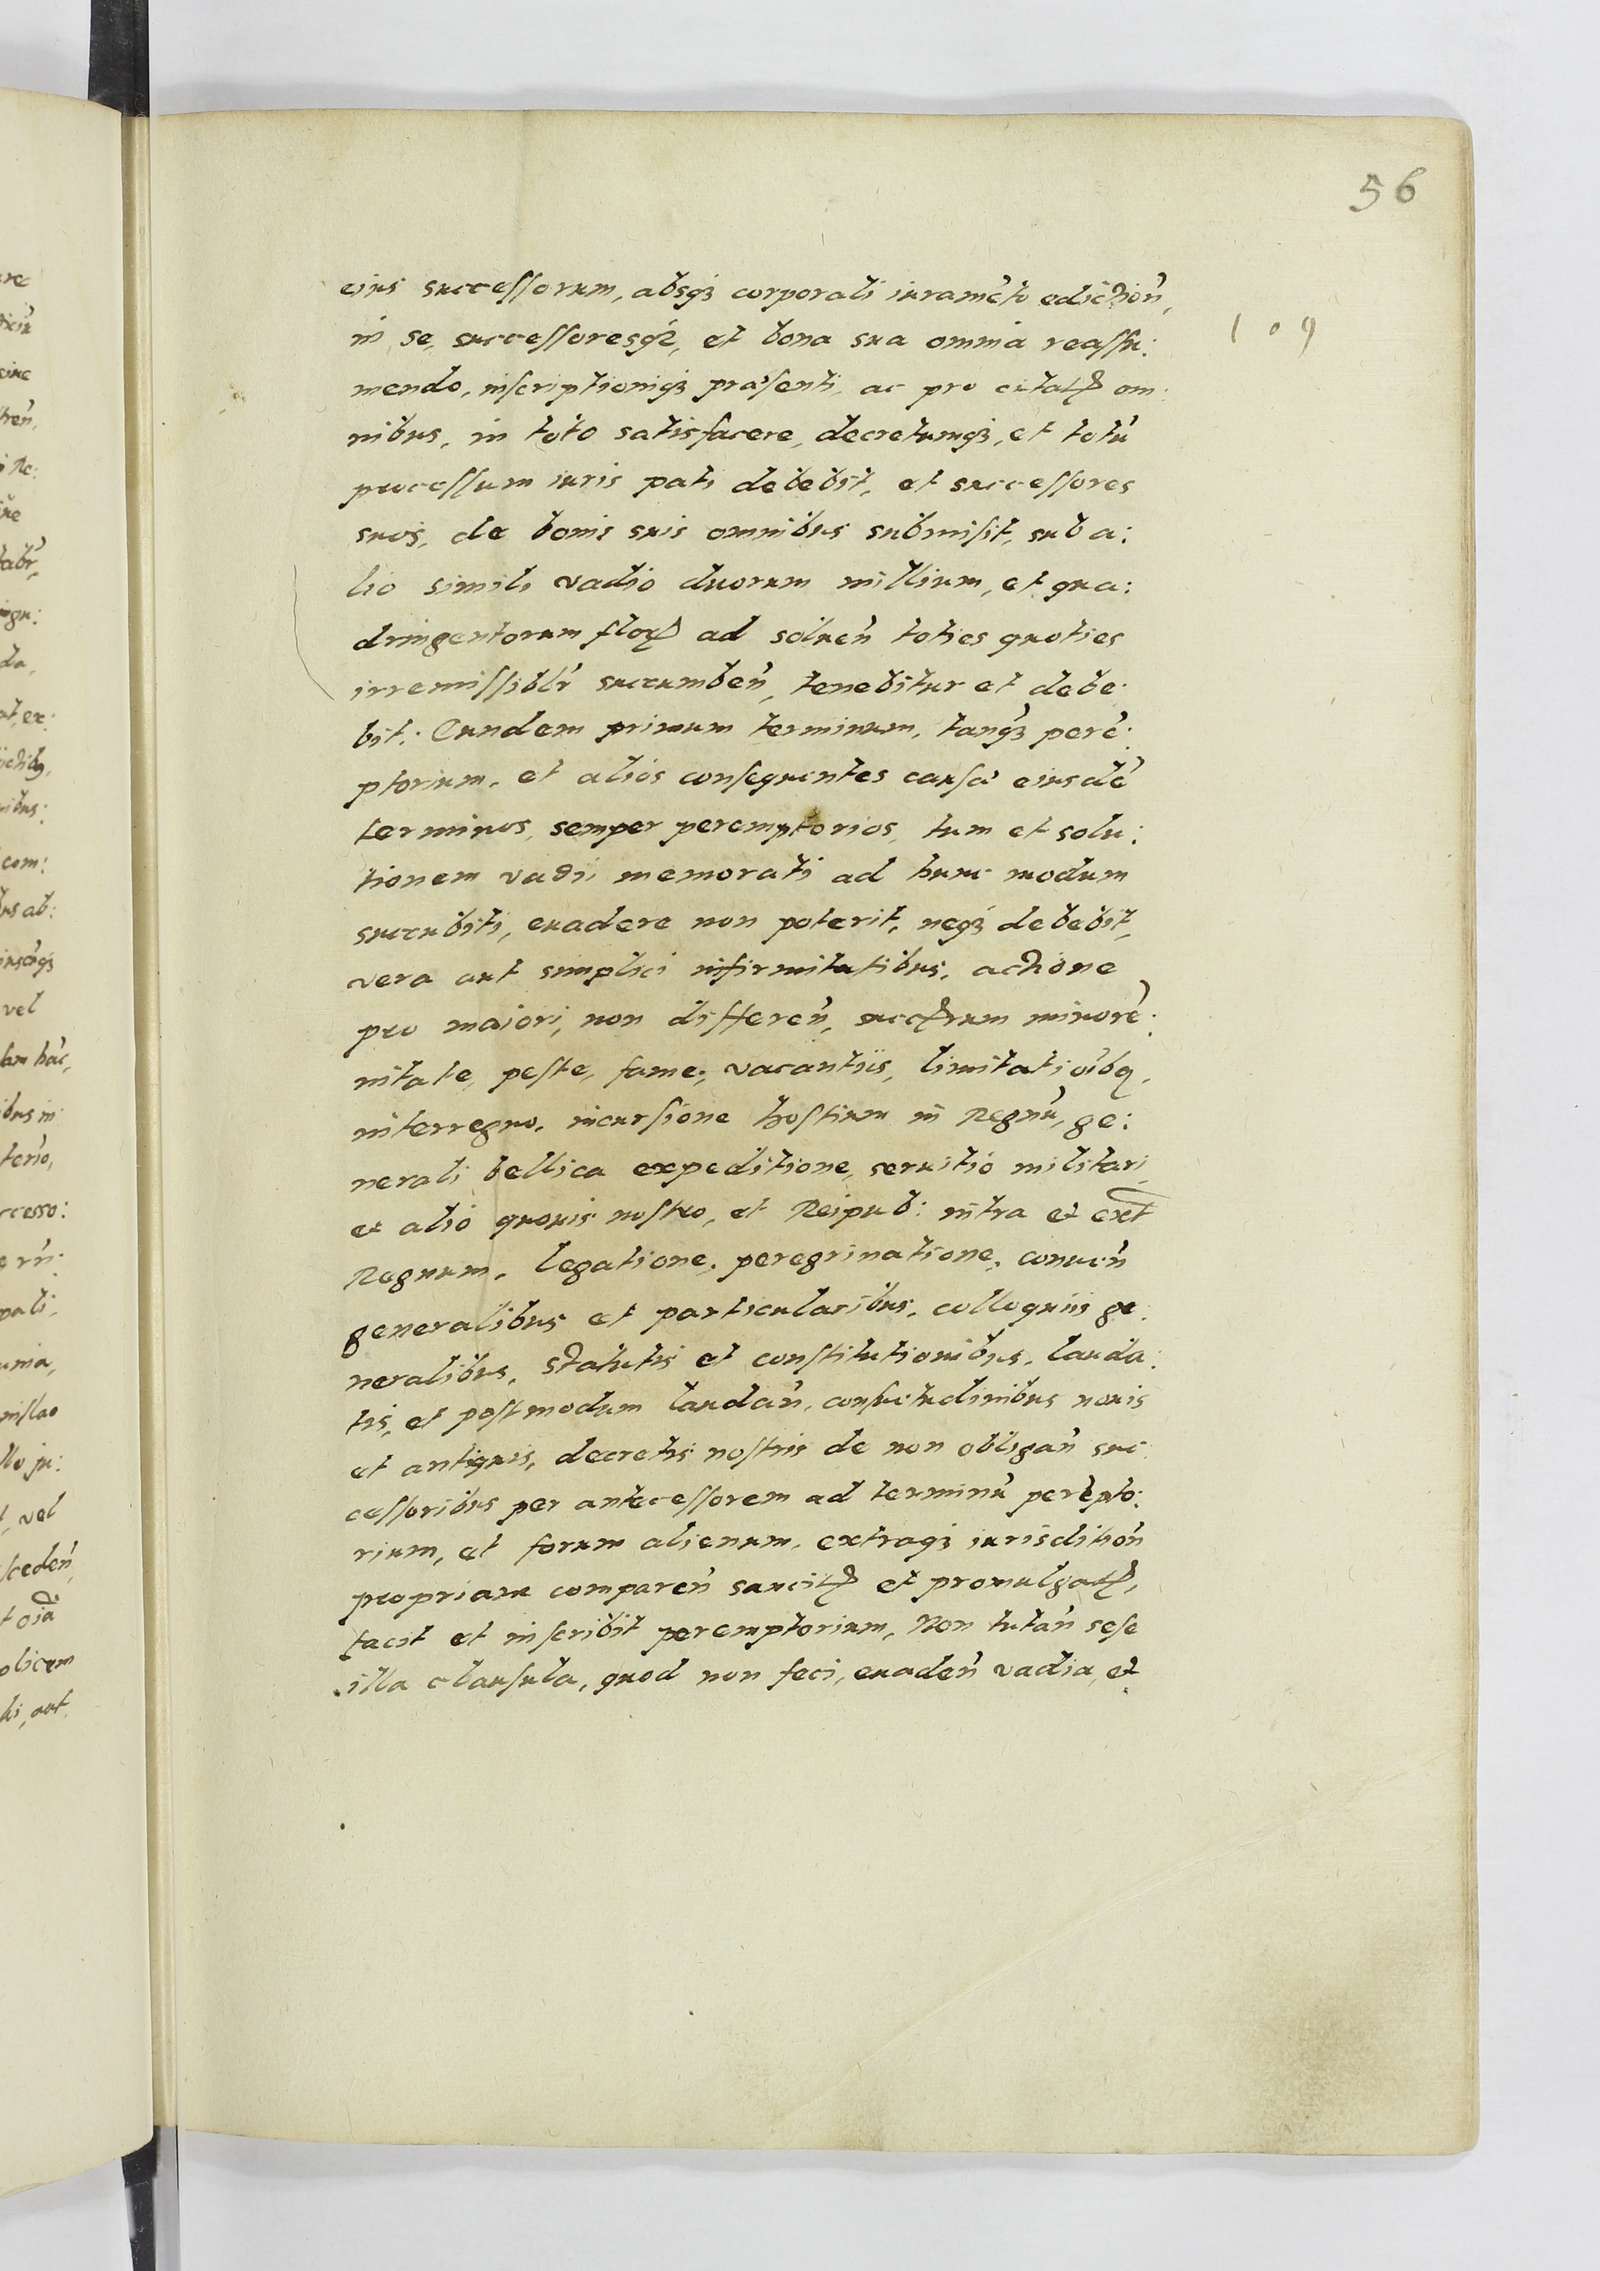 56
109
eius successorum, absq3 corporali iuramēto edictioñ,
in se, successoresq3, et bona sua omnia reassu:
mendo, inscriptioniq3 praesenti, ac pro citat om:
nibus, in toto satisfacere, decretumq3, et totũ
processum iuris pati debebit, et successores
suos, de bonis suis omnibus submisit, sub a:
lio simili vadio duorum millium, et qua:
dringentorum flor ad soluen̄ toties quoties
irremissiblr̄ succumben̄, tenebitur et debe:
bit: Eundem primum terminum, tanq3 perē:
ptorium, et alios consequentes causa eiusdē
terminos, semper peremptorios, tum et solu:
tionem vadii memorati ad hunc modum
succubiti, euadere non poterit, neq3 debebit,
vera aut simplici infirmitatibus, actione
pro maiori, non differen̄, succrum minorē:
nitate, peste, fame, vacantiis, limitatioībq,
interregno, incursione hostium in Regnũ, ge:
nerali bellica expeditione, seruitio militari,
et alio quouis nostro, et Reipub: intra et ext
Regnum, legatione, peregrinatione, conuen̄
generalibus et particularibus, colloquiis ge:
neralibus, statutis et constitutionibus, lauda:
tis, et postmodum laudan̄, consuetudinibus nouis
et antiquis, decretis nostris de non obligan̄ suc:
cessoribus per antecessorem ad terminũ perēpto:
rium, et forum alienum, extraq3 iurisdition̄
propriam comparen̄ sancit et promulgat,
facit et inscribit peremptorium, Non tutan̄ sese
illa clausula, quod non feci, euaden̄ vadia, et